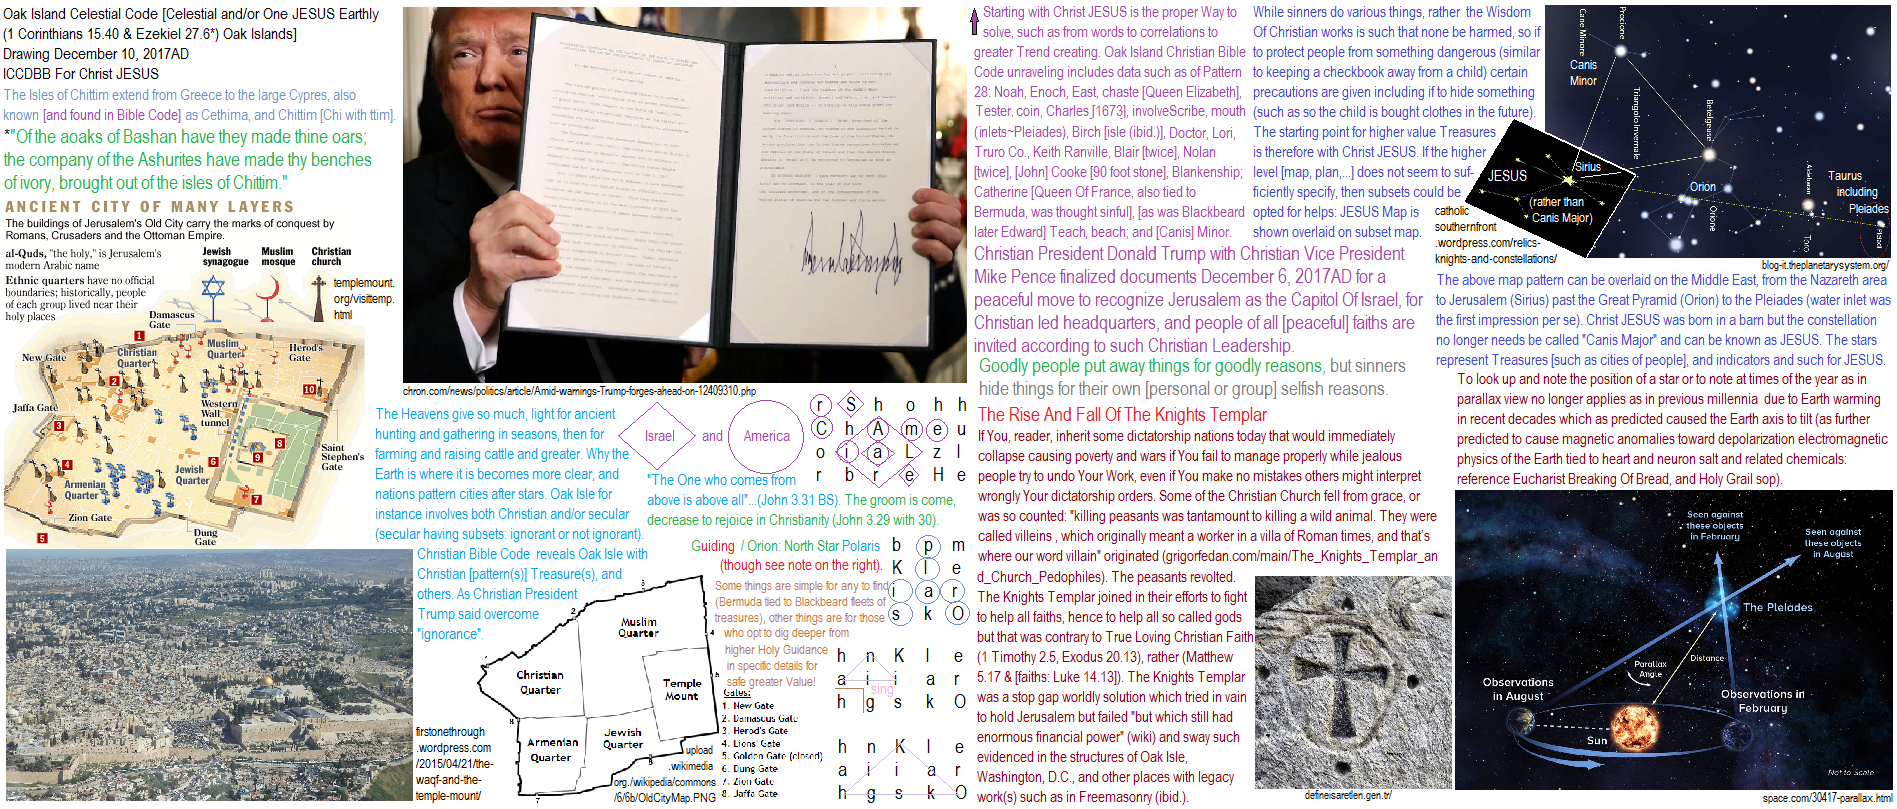 Oak Island Celestial Code [Celestial and/or One JESUS Earthly
(1 Corinthians 15.40 & Ezekiel 27.6*) Oak Islands]
Drawing December 10, 2017AD
ICCDBB For Christ JESUS
The Isles of Chittim extend from Greece to the large Cypres, also
known [and found in Bible Code] as Cethima, and Chittim [Chi with ttim].
*"Of the aoaks of Bashan have they made thine oars;
the company of the Ashurites have made thy benches
of ivory, brought out of the isles of Chittim."
ANCIENT CITY OF MANY LAYERS
The buildings of Jerusalem's Old City carry the marks of conquest by
Romans, Crusaders and the Ottoman Empire.
al-Quds, "the holy," is Jerusalem's
modern Arabic name
Ethnic quarters have no official
boundaries; historically, people
of each group lived near their
holy places
Jewish
synagogue
Muslim
mosque
Christian
church
templemount.
org/visittemp.
html
Damascus
Gate
New Gate
Christian
Quarter
Muslim
Quarter
Herod's
Gate
Jaffa Gate
Western
Wall
tunnel
Saint
Stephen's
Gate
Armenian
Quarter
Jewish
Quarter
Zion Gate
Dung
Gate
1
2
3
4
5
6
7
8
9
10
chron.com/news/politics/article/Amid-warnings-Trump-forges-ahead-on-12409310.php
The Heavens give so much, light for ancient
hunting and gathering in seasons, then for
farming and raising cattle and greater. Why the
Earth is where it is becomes more clear, and
nations pattern cities after stars. Oak Isle for
instance involves both Christian and/or secular
(secular having subsets: ignorant or not ignorant).
Christian Bible Code reveals Oak Isle with
Christian [pattern(s)] Treasure(s), and
others. As Christian President
Trump said overcome
"ignorance".
Israel and America
r S h o h h
C h A m e u
o i a L z l
r b r e H e
"The One who comes from
above is above all"...(John 3.31 BS). The groom is come,
decrease to rejoice in Christianity (John 3.29 with 30).
Guiding / Orion: North Star Polaris
(though see note on the right).
b p m
K l e
i a r
s k O
Some things are simple for any to find
(Bermuda tied to Blackbeard fleets of
treasures), other things are for those
who opt to dig deeper from
higher Holy Guidance
in specific details for
safe greater Value!
h n K l e
a i i a r
sing
h g s k O
h n K l e
a i i a r
h g s k O
Muslim
Quarter
Christian
Quarter
Temple
Mount
Armenian
Quarter
Jewish
Quarter
2
3
4
5
6
7
8
Gates:
1. New Gate
2. Damascus Gate
3. Herod's Gate
4. Lions' Gate
5. Golden Gate (closed)
6. Dung Gate
7. Zion Gate
8. Jaffa Gate
firstonethrough
.wordpress.com
/2015/04/21/the-
waqf-and-the-
temple-mount/
upload
.wikimedia
.org/wikipedia/commons
/6/6b/OldCityMap.PNG
Starting with Christ JESUS is the proper Way to
solve, such as from words to correlations to
greater Trend creating. Oak Island Christian Bible
Code unraveling includes data such as of Pattern
28: Noah, Enoch, East, chaste [Queen Elizabeth],
Tester, coin, Charles [1673], involveScribe, mouth
(inlets~Pleiades), Birch [isle (ibid.)], Doctor, Lori,
Truro Co., Keith Ranville, Blair [twice], Nolan
[twice], [John] Cooke [90 foot stone], Blankenship;
Catherine [Queen Of France, also tied to
Bermuda, was thought sinful], [as was Blackbeard
later Edward] Teach, beach; and [Canis] Minor.
Christian President Donald Trump with Christian Vice President
Mike Pence finalized documents December 6, 2017AD for a
peaceful move to recognize Jerusalem as the Capitol Of Israel, for
Christian led headquarters, and people of all [peaceful] faiths are
invited according to such Christian Leadership.
Goodly people put away things for goodly reasons, but sinners
hide things for their own [personal or group] selfish reasons.
The Rise And Fall Of The Knights Templar
If You, reader, inherit some dictatorship nations today that would immediately
collapse causing poverty and wars if You fail to manage properly while jealous
people try to undo Your Work, even if You make no mistakes others might interpret
wrongly Your dictatorship orders. Some of the Christian Church fell from grace, or
was so counted: "killing peasants was tantamount to killing a wild animal. They were
called villeins , which originally meant a worker in a villa of Roman times, and that's
where our word villain" originated (grigorfedan.com/main/The_Knights_Templar_an
d_Church_Pedophiles). The peasants revolted.
The Knights Templar joined in their efforts to fight
to help all faiths, hence to help all so called gods
but that was contrary to True Loving Christian Faith
(1 Timothy 2.5, Exodus 20.13), rather (Matthew
5.17 & [faiths: Luke 14.13]). The Knights Templar
was a stop gap worldly solution which tried in vain
to hold Jerusalem but failed "but which still had
enormous financial power" (wiki) and sway such
evidenced in the structures of Oak Isle,
Washington, D.C., and other places with legacy
work(s) such as in Freemasonry (ibid.).
While sinners do various things, rather the Wisdom
Of Christian works is such that none be harmed, so if
to protect people from something dangerous (similar
to keeping a checkbook away from a child) certain
precautions are given including if to hide something
(such as so the child is bought clothes in the future).
The starting point for higher value Treasures
is therefore with Christ JESUS. If the higher
level [map, plan,...] does not seem to suf-
ficiently specify, then subsets could be
opted for helps: JESUS Map is
shown overlaid on subset map.
Cane Minore
Procione
Canis
Minor
Triangolo Invernale
Betelgeuse
JESUS
Sirius
(rather than
Canis Major)
Orion
Orione
Aldebaran
Taurus
including
Pleiades
Toro
Pleiadi
catholic
southernfront
.wordpress.com/relics-
knights-and-constellations/
blog-it.theplanetarysystem.org/
The above map pattern can be overlaid on the Middle East, from the Nazareth area
to Jerusalem (Sirius) past the Great Pyramid (Orion) to the Pleiades (water inlet was
the first impression per se). Christ JESUS was born in a barn but the constellation
no longer needs be called "Canis Major" and can be known as JESUS. The stars
represent Treasures [such as cities of people], and indicators and such for JESUS.
To look up and note the position of a star or to note at times of the year as in
parallax view no longer applies as in previous millennia due to Earth warming
in recent decades which as predicted caused the Earth axis to tilt (as further
predicted to cause magnetic anomalies toward depolarization electromagnetic
physics of the Earth tied to heart and neuron salt and related chemicals:
reference Eucharist Breaking Of Bread, and Holy Grail sop).
defineisaretleri.gen.tr/
Seen against
these objects
in February
Seen against
these objects
in August
The Pleiades
Parallax
Angle
Distance
Observations
in August
Observations in
February
Sun
Not to Scale
space.com/30417-parallax.html